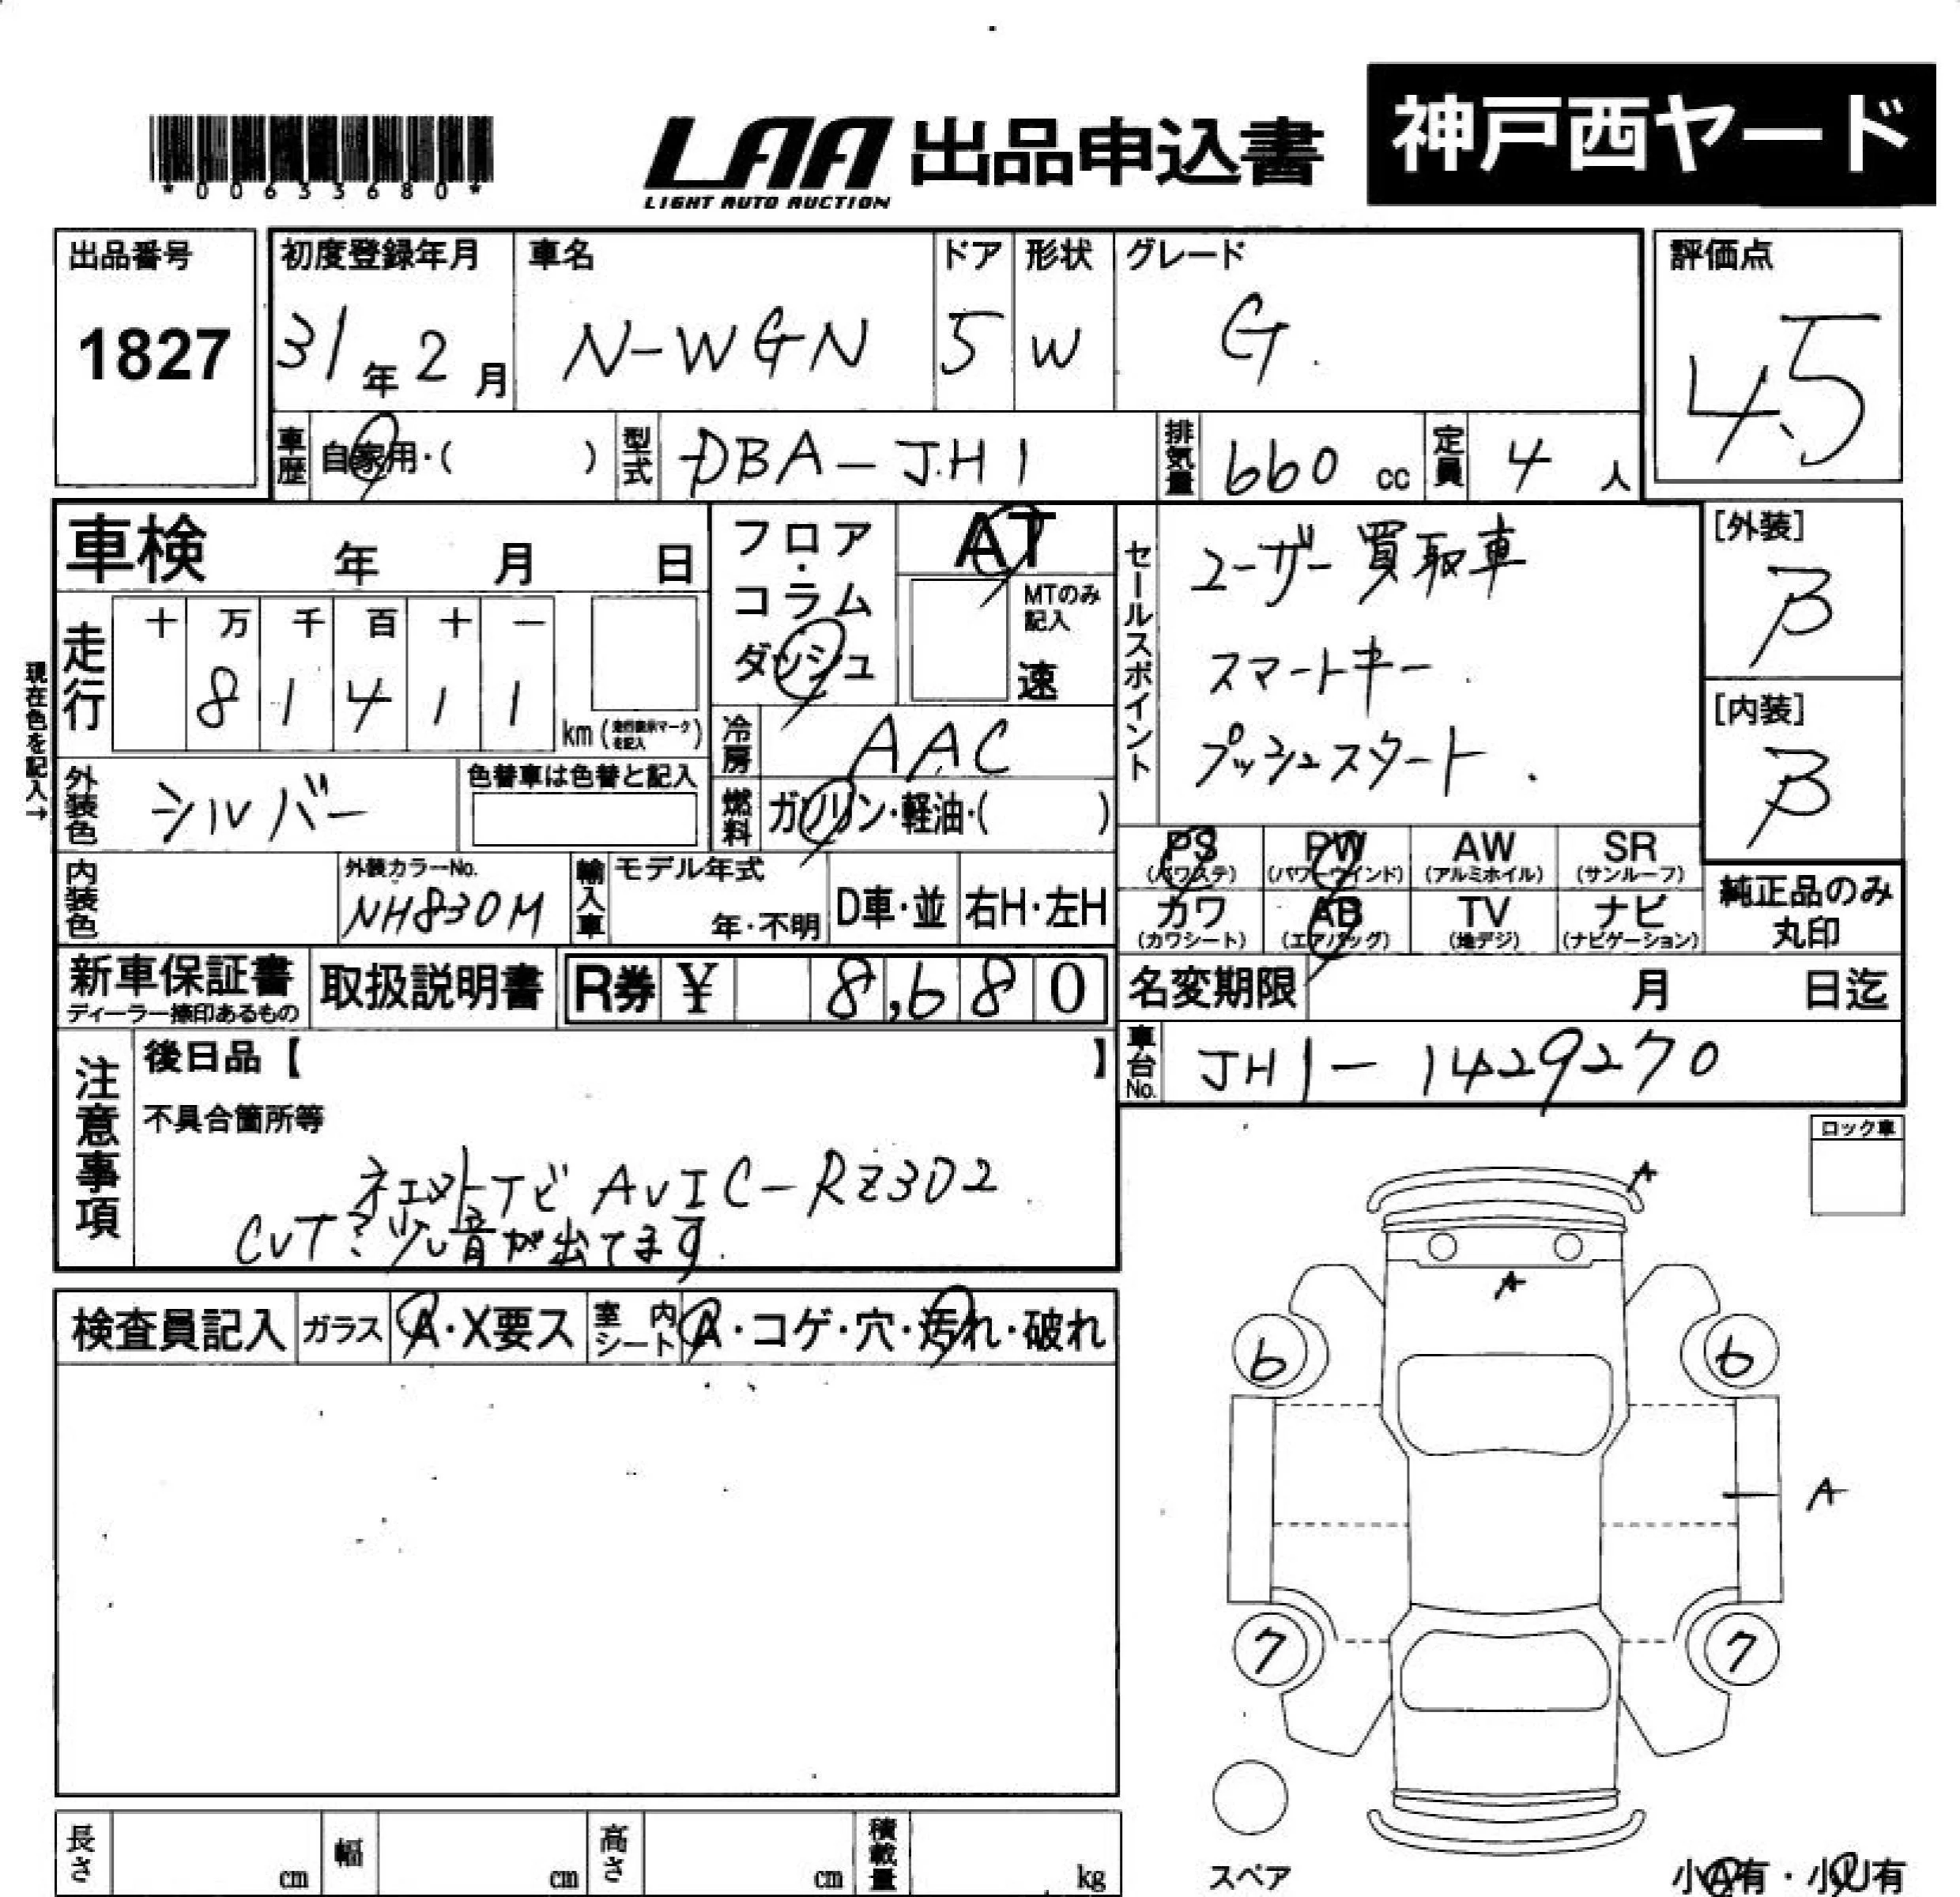 *00633680*
LAA 出品申込書
LIGHT AUTO AUCTION
神戸西ヤード
出品番号
1827
初度登録年月
31年2月
車名
N-WGN
ドア
5
形状
W
グレード
G
評価点
4.5
車歴 自家用・( )
型式 DBA-JH1
排気量 660 cc
定員 4 人
車検 年 月 日
フロア・コラム ダッシュ
AT
MTのみ記入
速
セールスポイント
ユーザー買取車
スマートキー
プッシュスタート
[外装]
B
[内装]
B
現在色を記入→
走行
十 万 千 百 十 一
8 1 4 1 1
km
冷房 AAC
燃料 ガソリン・軽油・( )
外装色 シルバー
色替車は色替と記入
内装色
外装カラーNo.
NH830M
輸入車
モデル年式
年・不明
D車・並
右H・左H
PS (パワステ)
PW (パワーウインド)
AW (アルミホイル)
SR (サンルーフ)
カワ (カワシート)
AB (エアバッグ)
TV (地デジ)
ナビ (ナビゲーション)
純正品のみ
丸印
新車保証書
ディーラー捺印あるもの
取扱説明書
R券 ¥ 8,680
名変期限 月 日迄
車台No. JH1-1429270
注意事項
後日品【 】
不具合箇所等
ナビ AVIC-RZ302
CVT?少し音が出てます
ロック車
検査員記入
ガラス A・X要ス
室内シート A・コゲ・穴・汚れ・破れ
A
A
6
6
A
7
7
スペア
長さ cm
幅 cm
高さ cm
積載量 kg
小A有・小U有